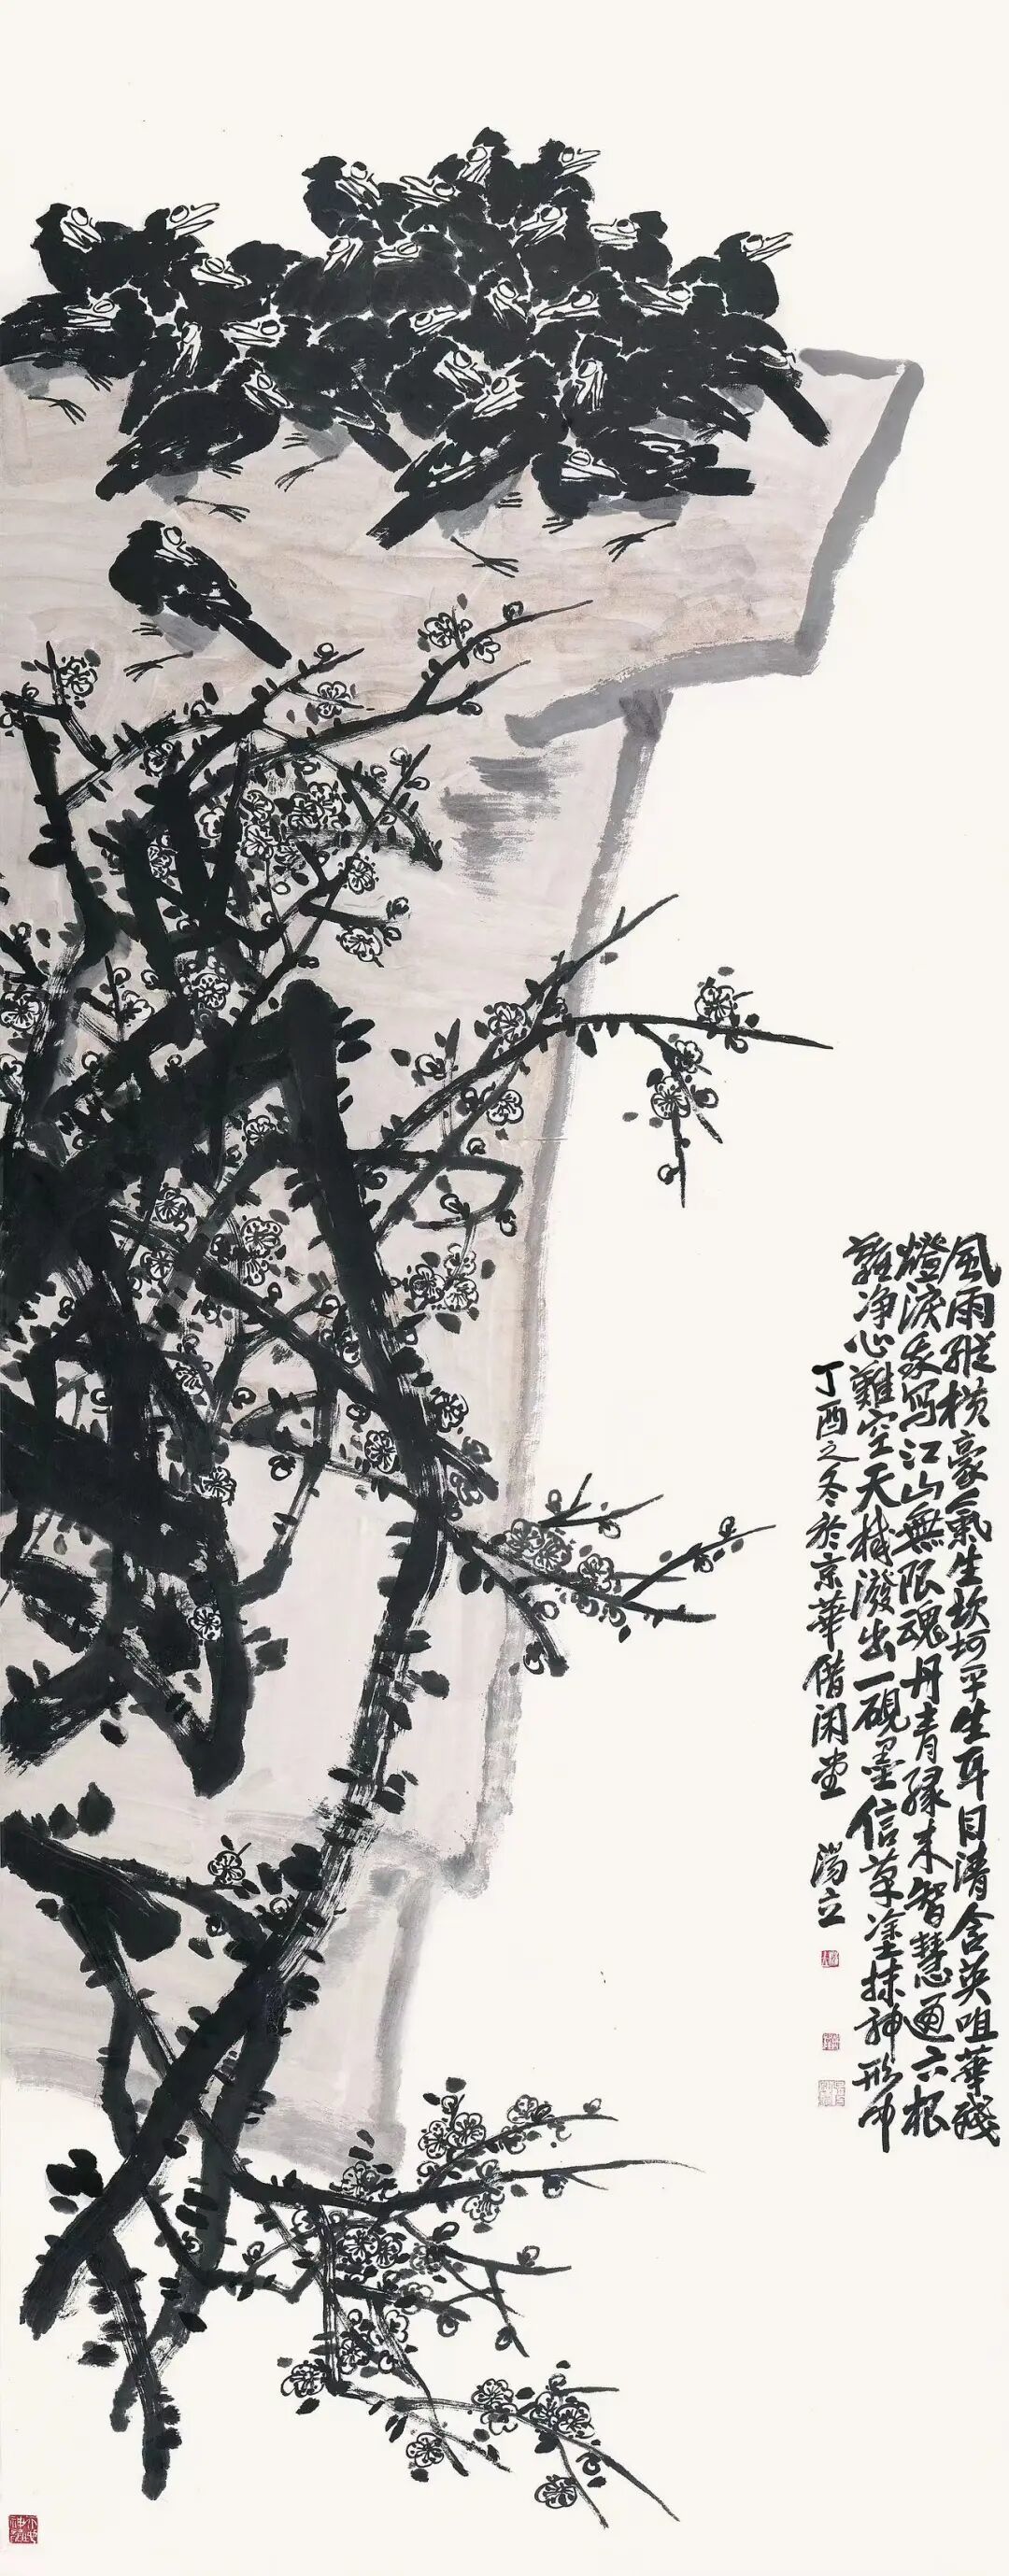 風雨縱横豪氣生坎坷平生耳目清含英咀華殘
燈淚寫江山無限魂丹青緣未智慧通六根
難净心難空天機潑出一硯墨信草塗抹神形中
丁酉之冬於京華偕閑堂 湯立